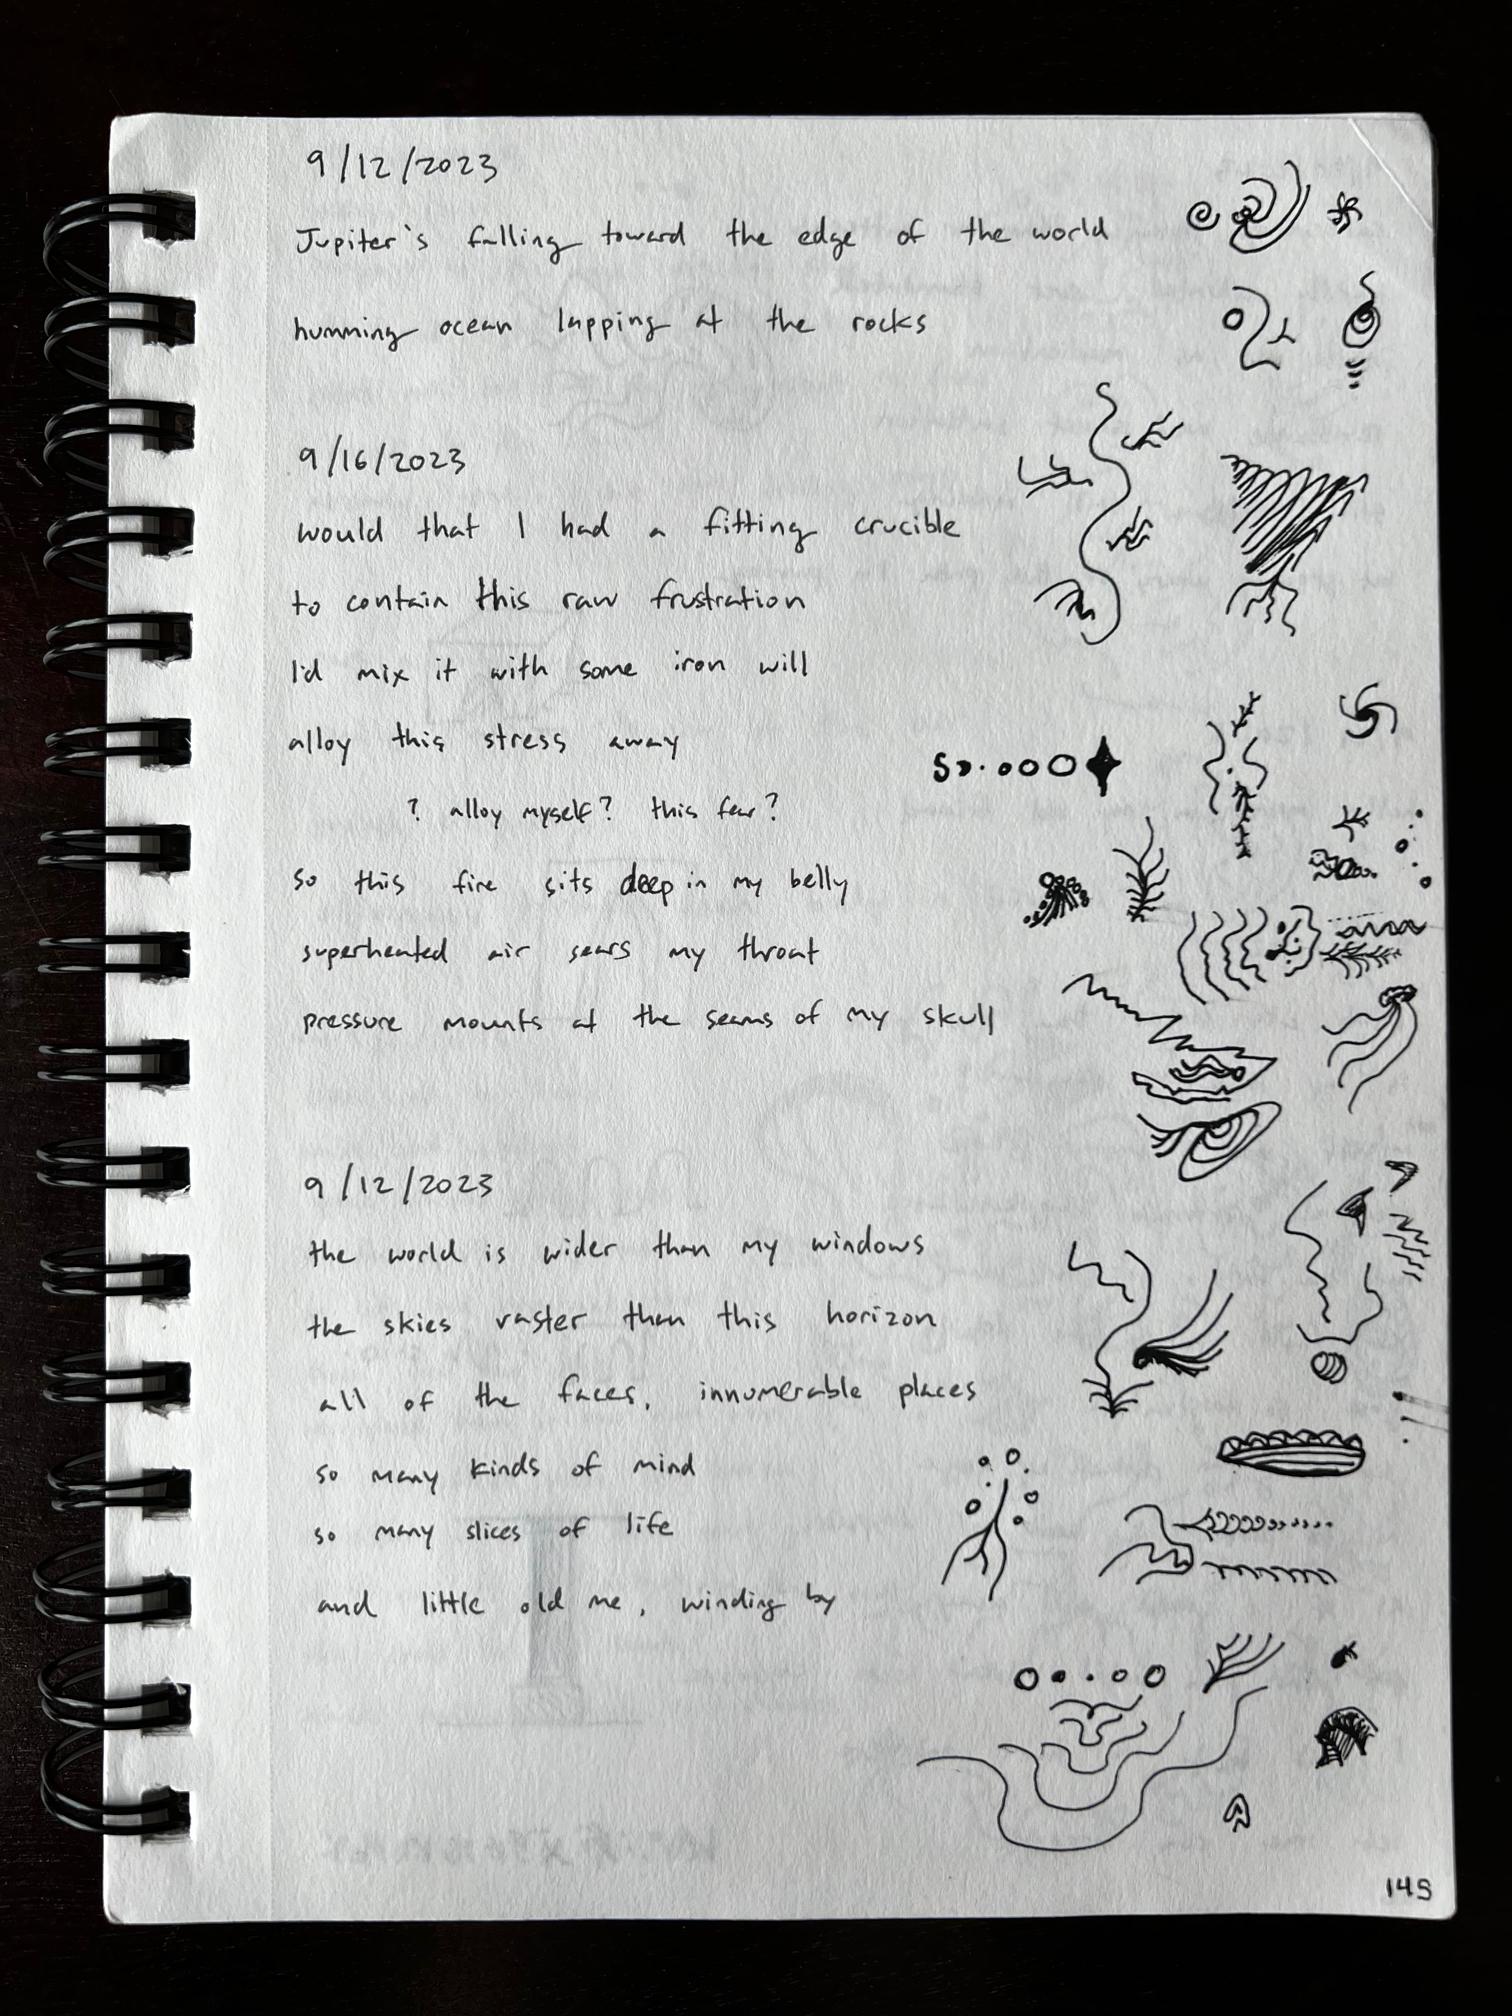 9/12/2023
Jupiter's falling toward the edge of the world
humming ocean lapping at the rocks
9/16/2023
would that I had a fitting crucible
to contain this raw frustration
I'd mix it with some iron will
alloy this stress away
? alloy myself? this fear?
so this fire sits deep in my belly
superheated air sears my throat
pressure mounts at the seams of my skull
9/12/2023
the world is wider than my windows
the skies vaster than this horizon
all of the faces, innumerable places
so many kinds of mind
so many slices of life
and little old me, winding by
145